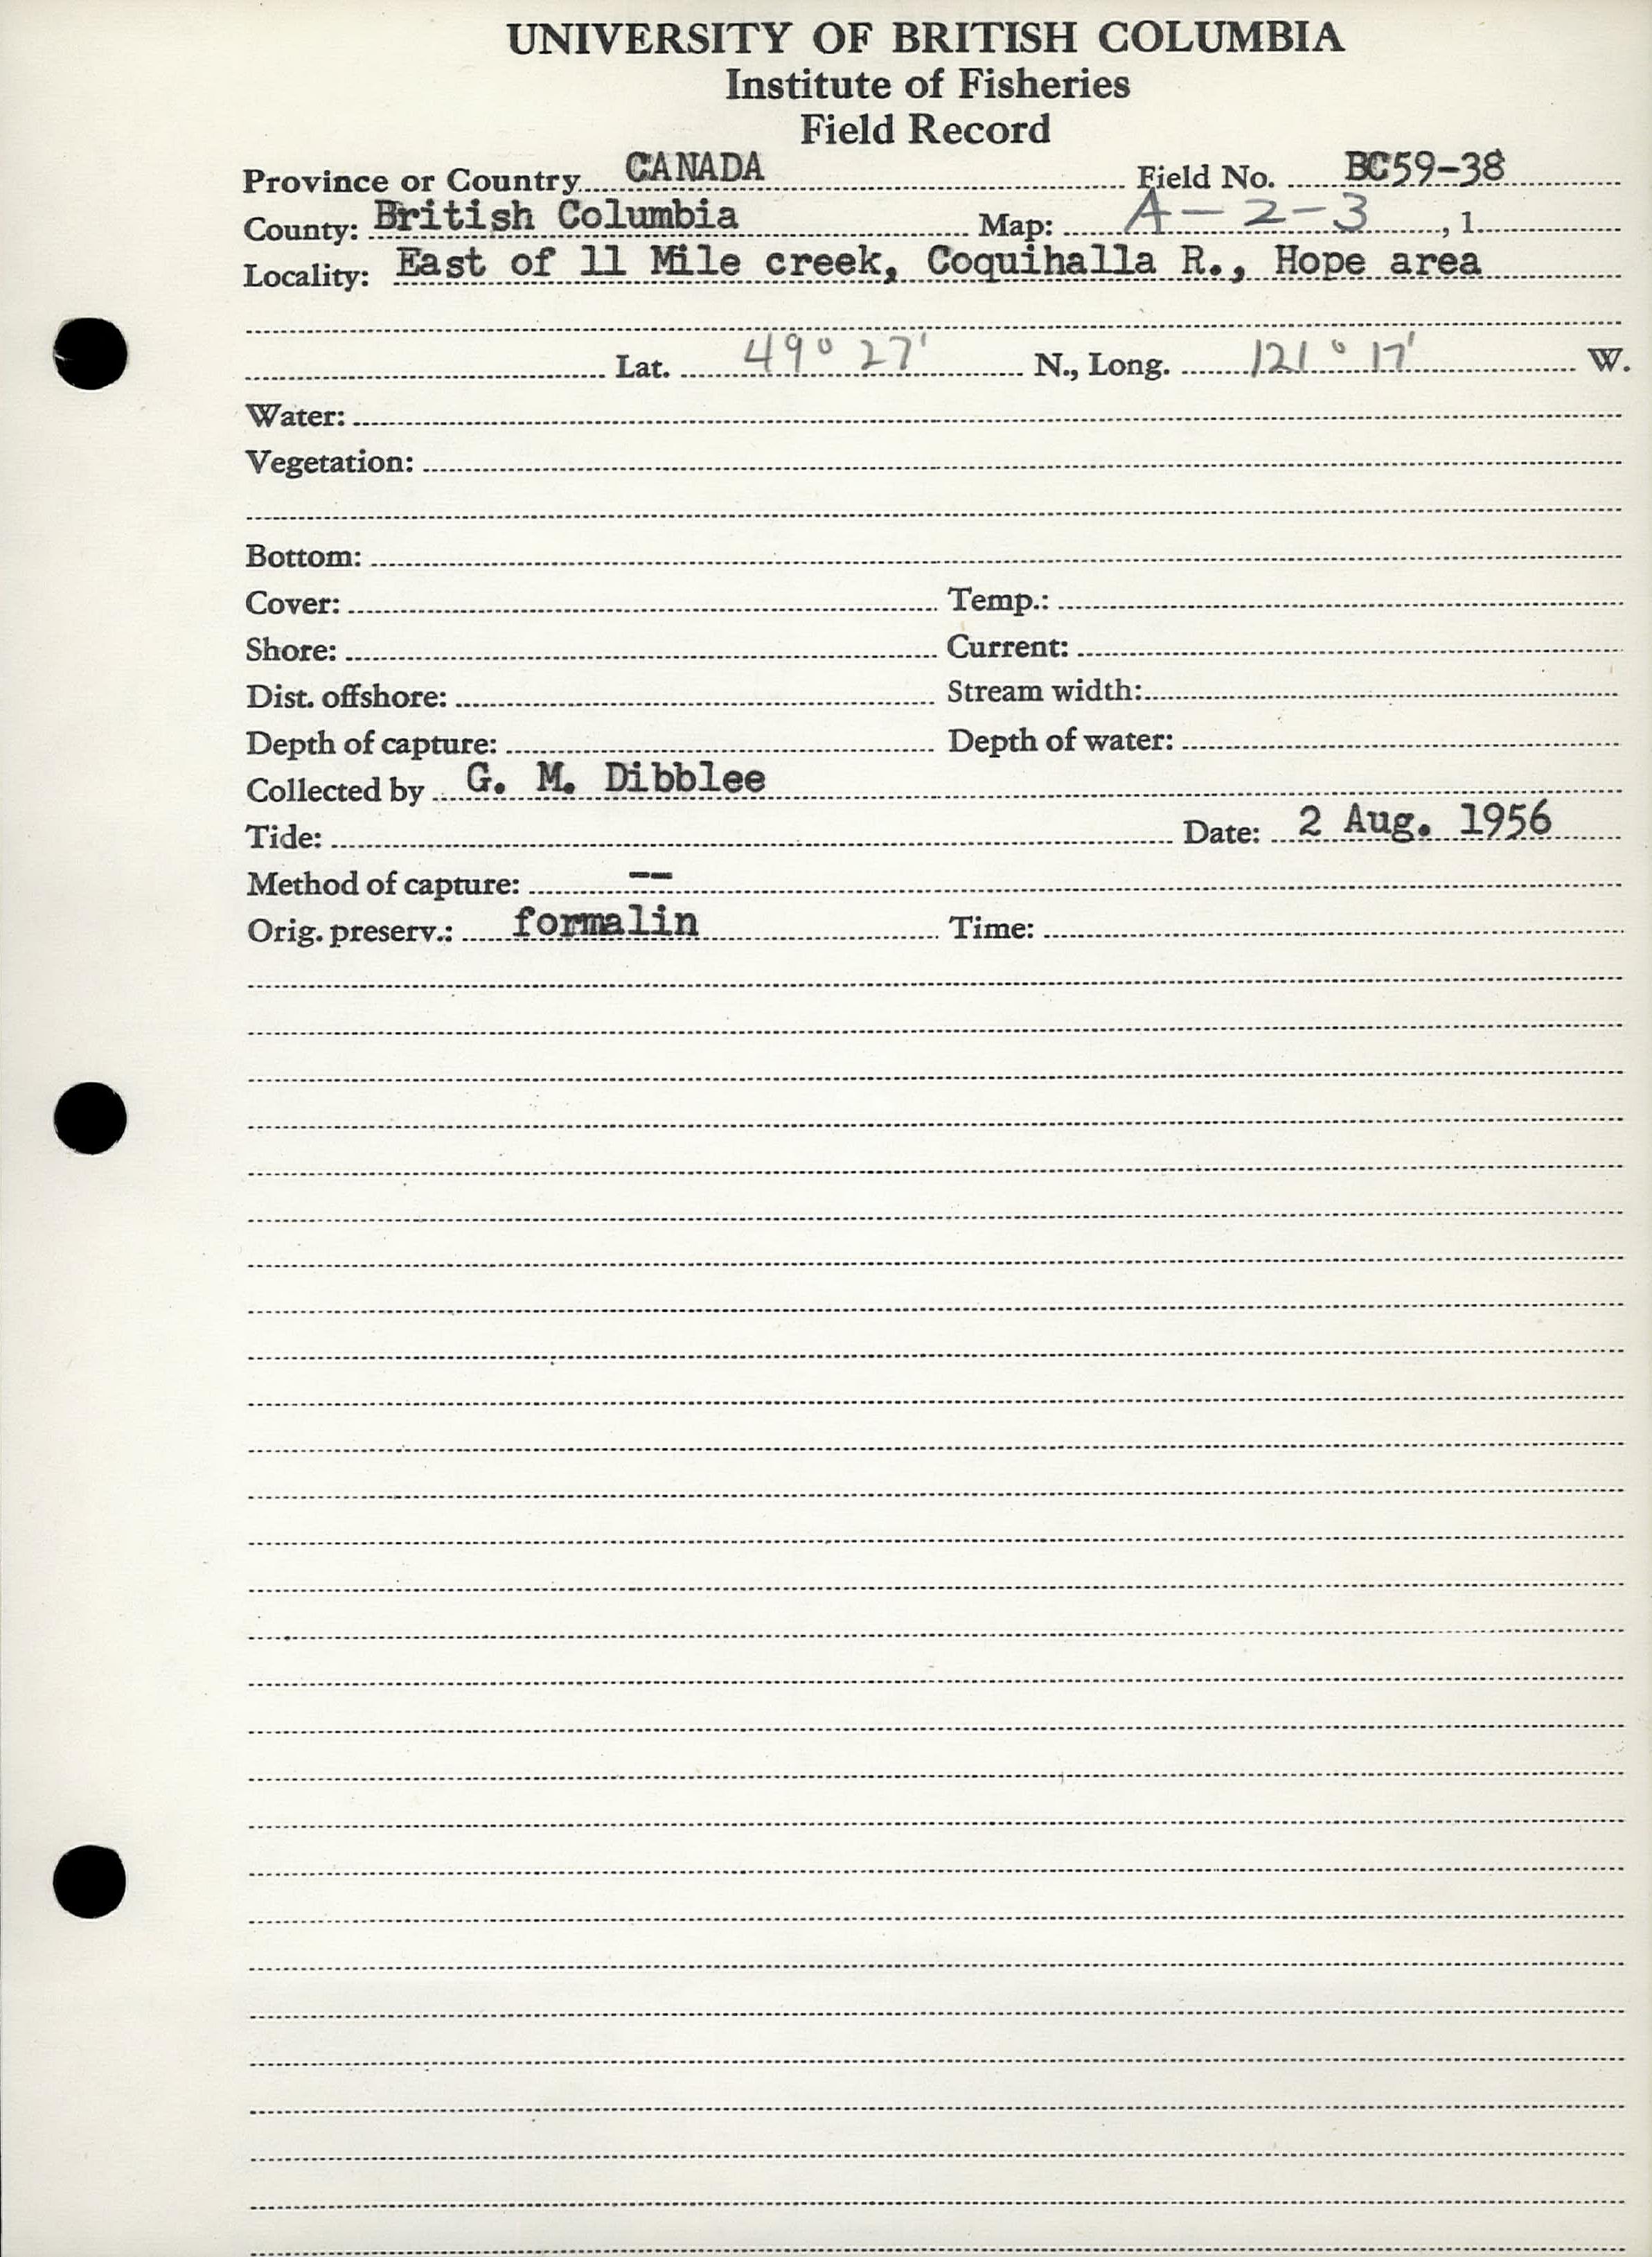 UNIVERSITY OF BRITISH COLUMBIA
Institute of Fisheries
Field Record
Province or Country CANADA Field No. BC59-38
County: British Columbia Map: A-2-3, 1
Locality: East of 11 Mile creek, Coquihalla R., Hope area
Lat. 49° 27' N., Long. 121° 17' W.
Water:
Vegetation:
Bottom:
Cover: Temp.:
Shore: Current:
Dist. offshore: Stream width:
Depth of capture: Depth of water:
Collected by G. M. Dibblee
Tide: Date: 2 Aug. 1956
Method of capture: --
Orig. preserv.: formalin Time: